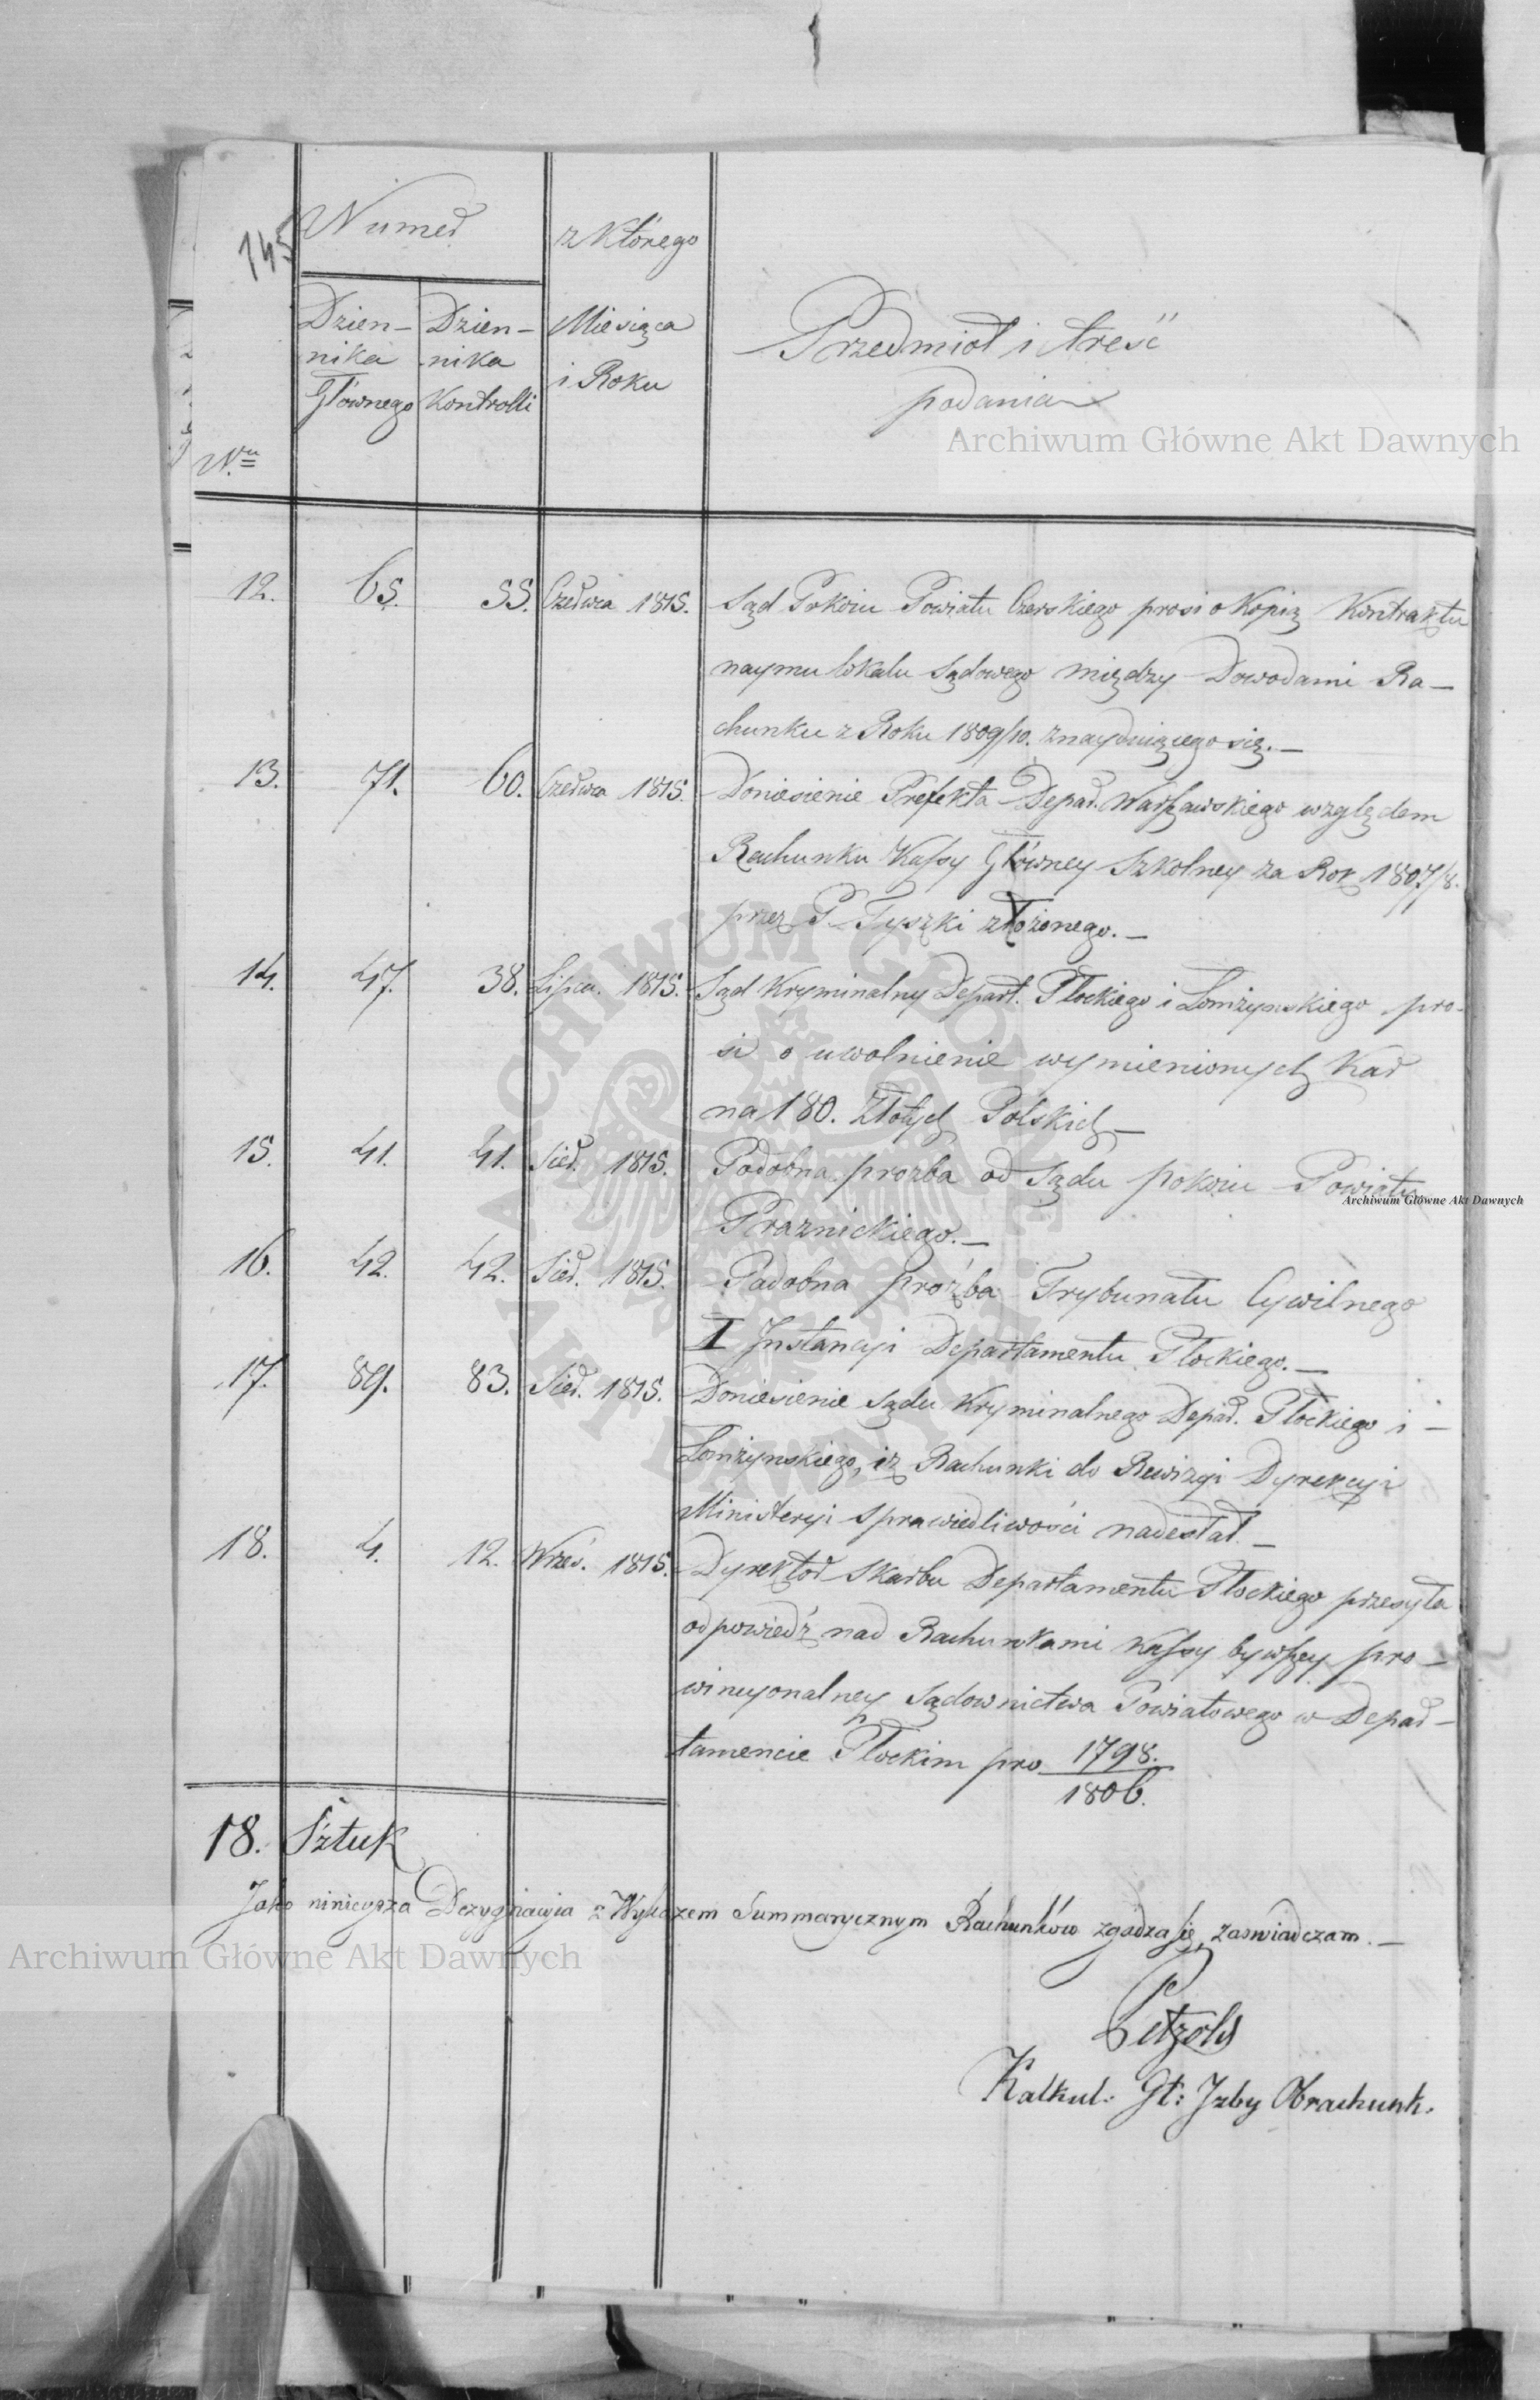 145
Numer
z którego
Dzien-
nika
Głównego
Dzien-
nika
Kontrolli
Miesiąca
i Roku
Przedmiot i treść
podania
Archiwum Główne Akt Dawnych
Nru
12. 65. 55. Czerwca 1815. Sąd Pokoiu Powiatu Czerskiego prosi o Kopią Kontraktu
naymu lokalu Sądowego między Dowodami Ra-
chunku z Roku 1809/10. znayduiącego się.-
13. 71. 60. Czerwca 1815. Doniesienie Prefekta Depar. Warszawskiego względem
Rachunku Kassy Główney Szkolney za Rok 1807/8.
przez P. Tyszki złożonego.-
14. 47. 38. Lipca. 1815. Sąd Kryminalny Depart. Płockiego i Łomżynskiego pro-
si o uwolnienie wymienionych Kar
na 180. Złotych Polskich-
15. 41. 41. Sier. 1815. Podobna prozba od Sądu pokoiu Powiatu
Archiwum Główne Akt Dawnych
Praznickiego.-
16. 42. 42. Sier. 1815. Podobna proźba Trybunału Cywilnego
I Instancyi Departamentu Płockiego.-
17. 89. 83. Sier. 1815. Doniesienie Sądu Kryminalnego Depar. Płockiego i-
Łomżynskiego, iż Rachunki do Rewizyi Dyrekcyi
Ministeryi Sprawiedliwości nadesłał.-
18. 4. 12. Wrześ. 1815. Dyrektor Skarbu Departamentu Płockiego przesyła
odpowiedź nad Rachunkami Kassy bywszey pro-
wincyonalney Sądownictwa Powiatowego w Depar-
tamencie Płockim pro 1798.
1806.
18. Sztuk
Jako ninieysza Dezygnacyia z Wykazem Summarycznym Rachunków zgadza się, zaświadczam.-
Archiwum Główne Akt Dawnych
Petzold
Kalkul: Gł: Izby Obrachunk.
ARCHIWUM GŁÓWNE AKT DAWNYCH